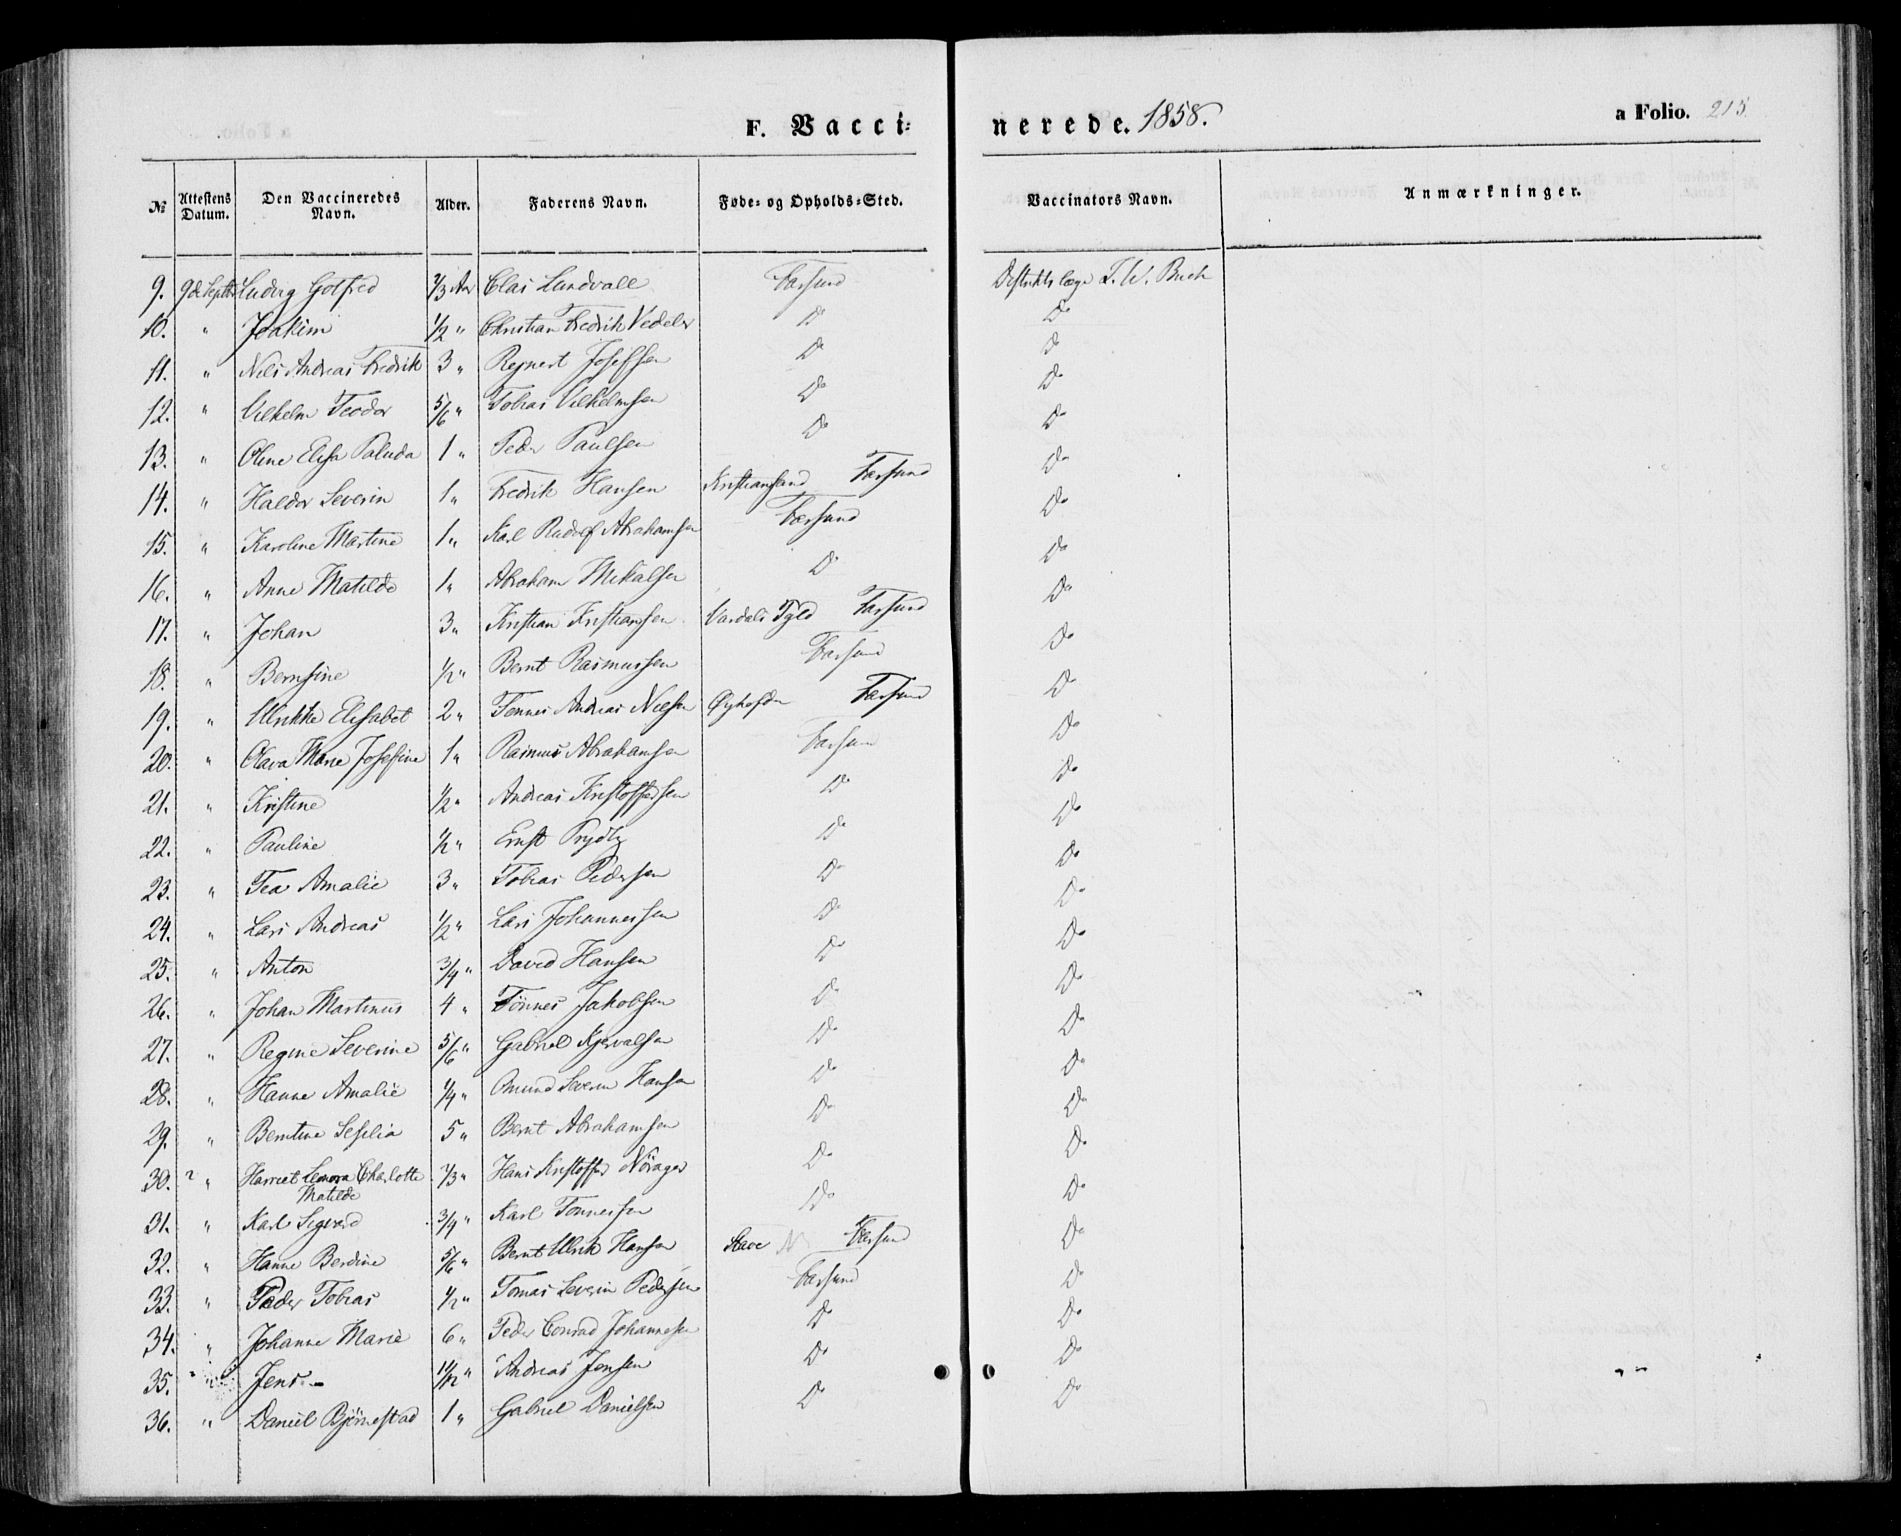 F. Vacci=
nerede. 1858.
a Folio. 215.
№ Attestens Datum. Den Vaccineredes Navn. Alder. Faderens Navn. Føde= og Opholds=Sted. Vaccinators Navn. Anmærkninger.
9. 9de Septbr Ludvig Gotfred 2/3 Aar Clas Lundvall Farsund Distriktslæge F. W. Buch
10. " Joakim 1/2 " Christian Fredrik Vedeler Do Do
11. " Nils Andreas Fredrik 3 " Regnert Josefsen Do Do
12. " Vilhelm Teodor 5/6 " Tobias Vilhelmsen Do Do
13. " Oline Elisa Paluda 1 " Peder Paulsen Do Do
14. " Haldor Severin 1 " Fredrik Hansen Kristiansand Farsund Do
15. " Karoline Martine 1 " Karl Rudolf Abrahamsen Farsund Do
16. " Anne Matilde 1 " Abraham Mikalsen Do Do
17. " Johan 3 " Kristian Kristiansen Vardals Pgld Farsund Do
18. " Bernsine 1/2 " Bernt Rasmussen Farsund Do
19. " Ulrikke Elisabet 2 " Tønnes Andreas Nielsen Farsund Do
20. " Olava Marie Josefine 1 " Rasmus Abrahamsen Farsund Do
21. " Kristine 1/2 " Andreas Kristoffersen Do Do
22. " Pauline 1/2 " Ernst Prydtz Do Do
23. " Tea Amalie 3 " Tobias Pedersen Do Do
24. " Lars Andreas 1/2 " Lars Johannessen Do Do
25. " Anton 3/4 " David Hansen Do Do
26. " Johan Martinus 4 " Tönnes Jakobsen Do Do
27. " Regine Severine 5/6 " Gabriel Do Do
28. " Hanne Amalie 1/4 " Omund Severin Hansen Do Do
29. " Berntine Sesilia 5 " Bernt Abrahamsen Do Do
30. " Harriet Lenora Charlotte 2/3 " Hans Kristoffer Nörager Do Do
Matilde
31. " Karl Sigvard 3/4 " Karl Tønnessen Do Do
32. " Hanne Berdine 5/6 " Bernt Ulrik Hansen Farsund Do
33. " Peder Tobias 1/2 " Tomas Severin Pedersen Farsund Do
34. " Johanne Marie 6 " Peder Conrad Johannesen Do Do
35. " Jens 11/12 " Andreas Jensen Do Do
36. " Daniel Björnestad 1 " Gabriel Danielsen Do Do